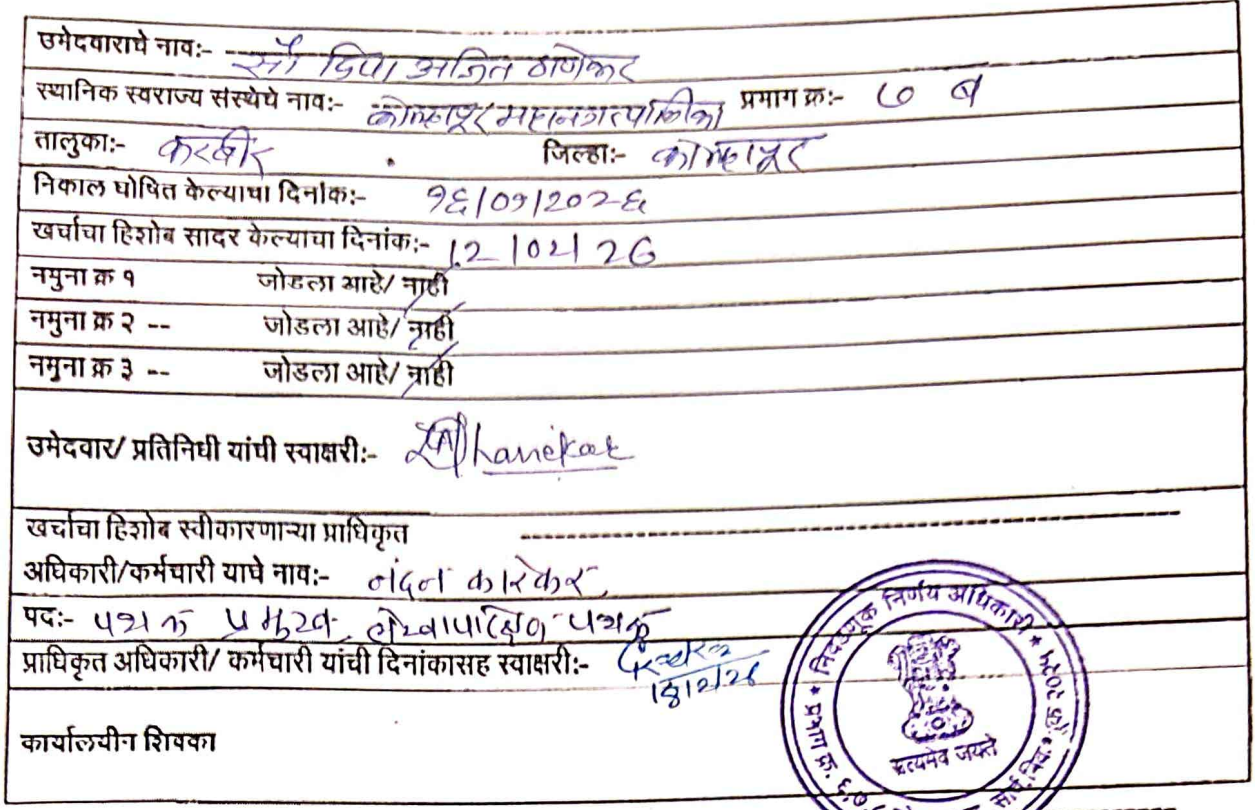 उमेदवाराचे नाव:- सौ दिपा अजित ठाणेकर
स्थानिक स्वराज्य संस्थेचे नाव:- कोल्हापूर महानगरपालिका प्रभाग क्र:- ७ ब
तालुका:- करवीर जिल्हा:- कोल्हापूर
निकाल घोषित केल्याचा दिनांक:- १६/०१/२०२६
खर्चाचा हिशोब सादर केल्याचा दिनांक:- 12/02/26
नमुना क्र १ जोडला आहे/ नाही
नमुना क्र २ -- जोडला आहे/ नाही
नमुना क्र ३ -- जोडला आहे/ नाही
उमेदवार/ प्रतिनिधी यांची स्वाक्षरी:- Thanekar
खर्चाचा हिशोब स्वीकारणाऱ्या प्राधिकृत
अधिकारी/कर्मचारी याचे नाव:- नंदन कारेकर
पदः- पथक प्रमुख, लेखापरिक्षण पथक
प्राधिकृत अधिकारी/ कर्मचारी यांची दिनांकासह स्वाक्षरी:-
कार्यालयीन शिक्का
निवडणूक निर्णय अधिकारी
प्रभाग क्र. ६,७
सत्यमेव जयते